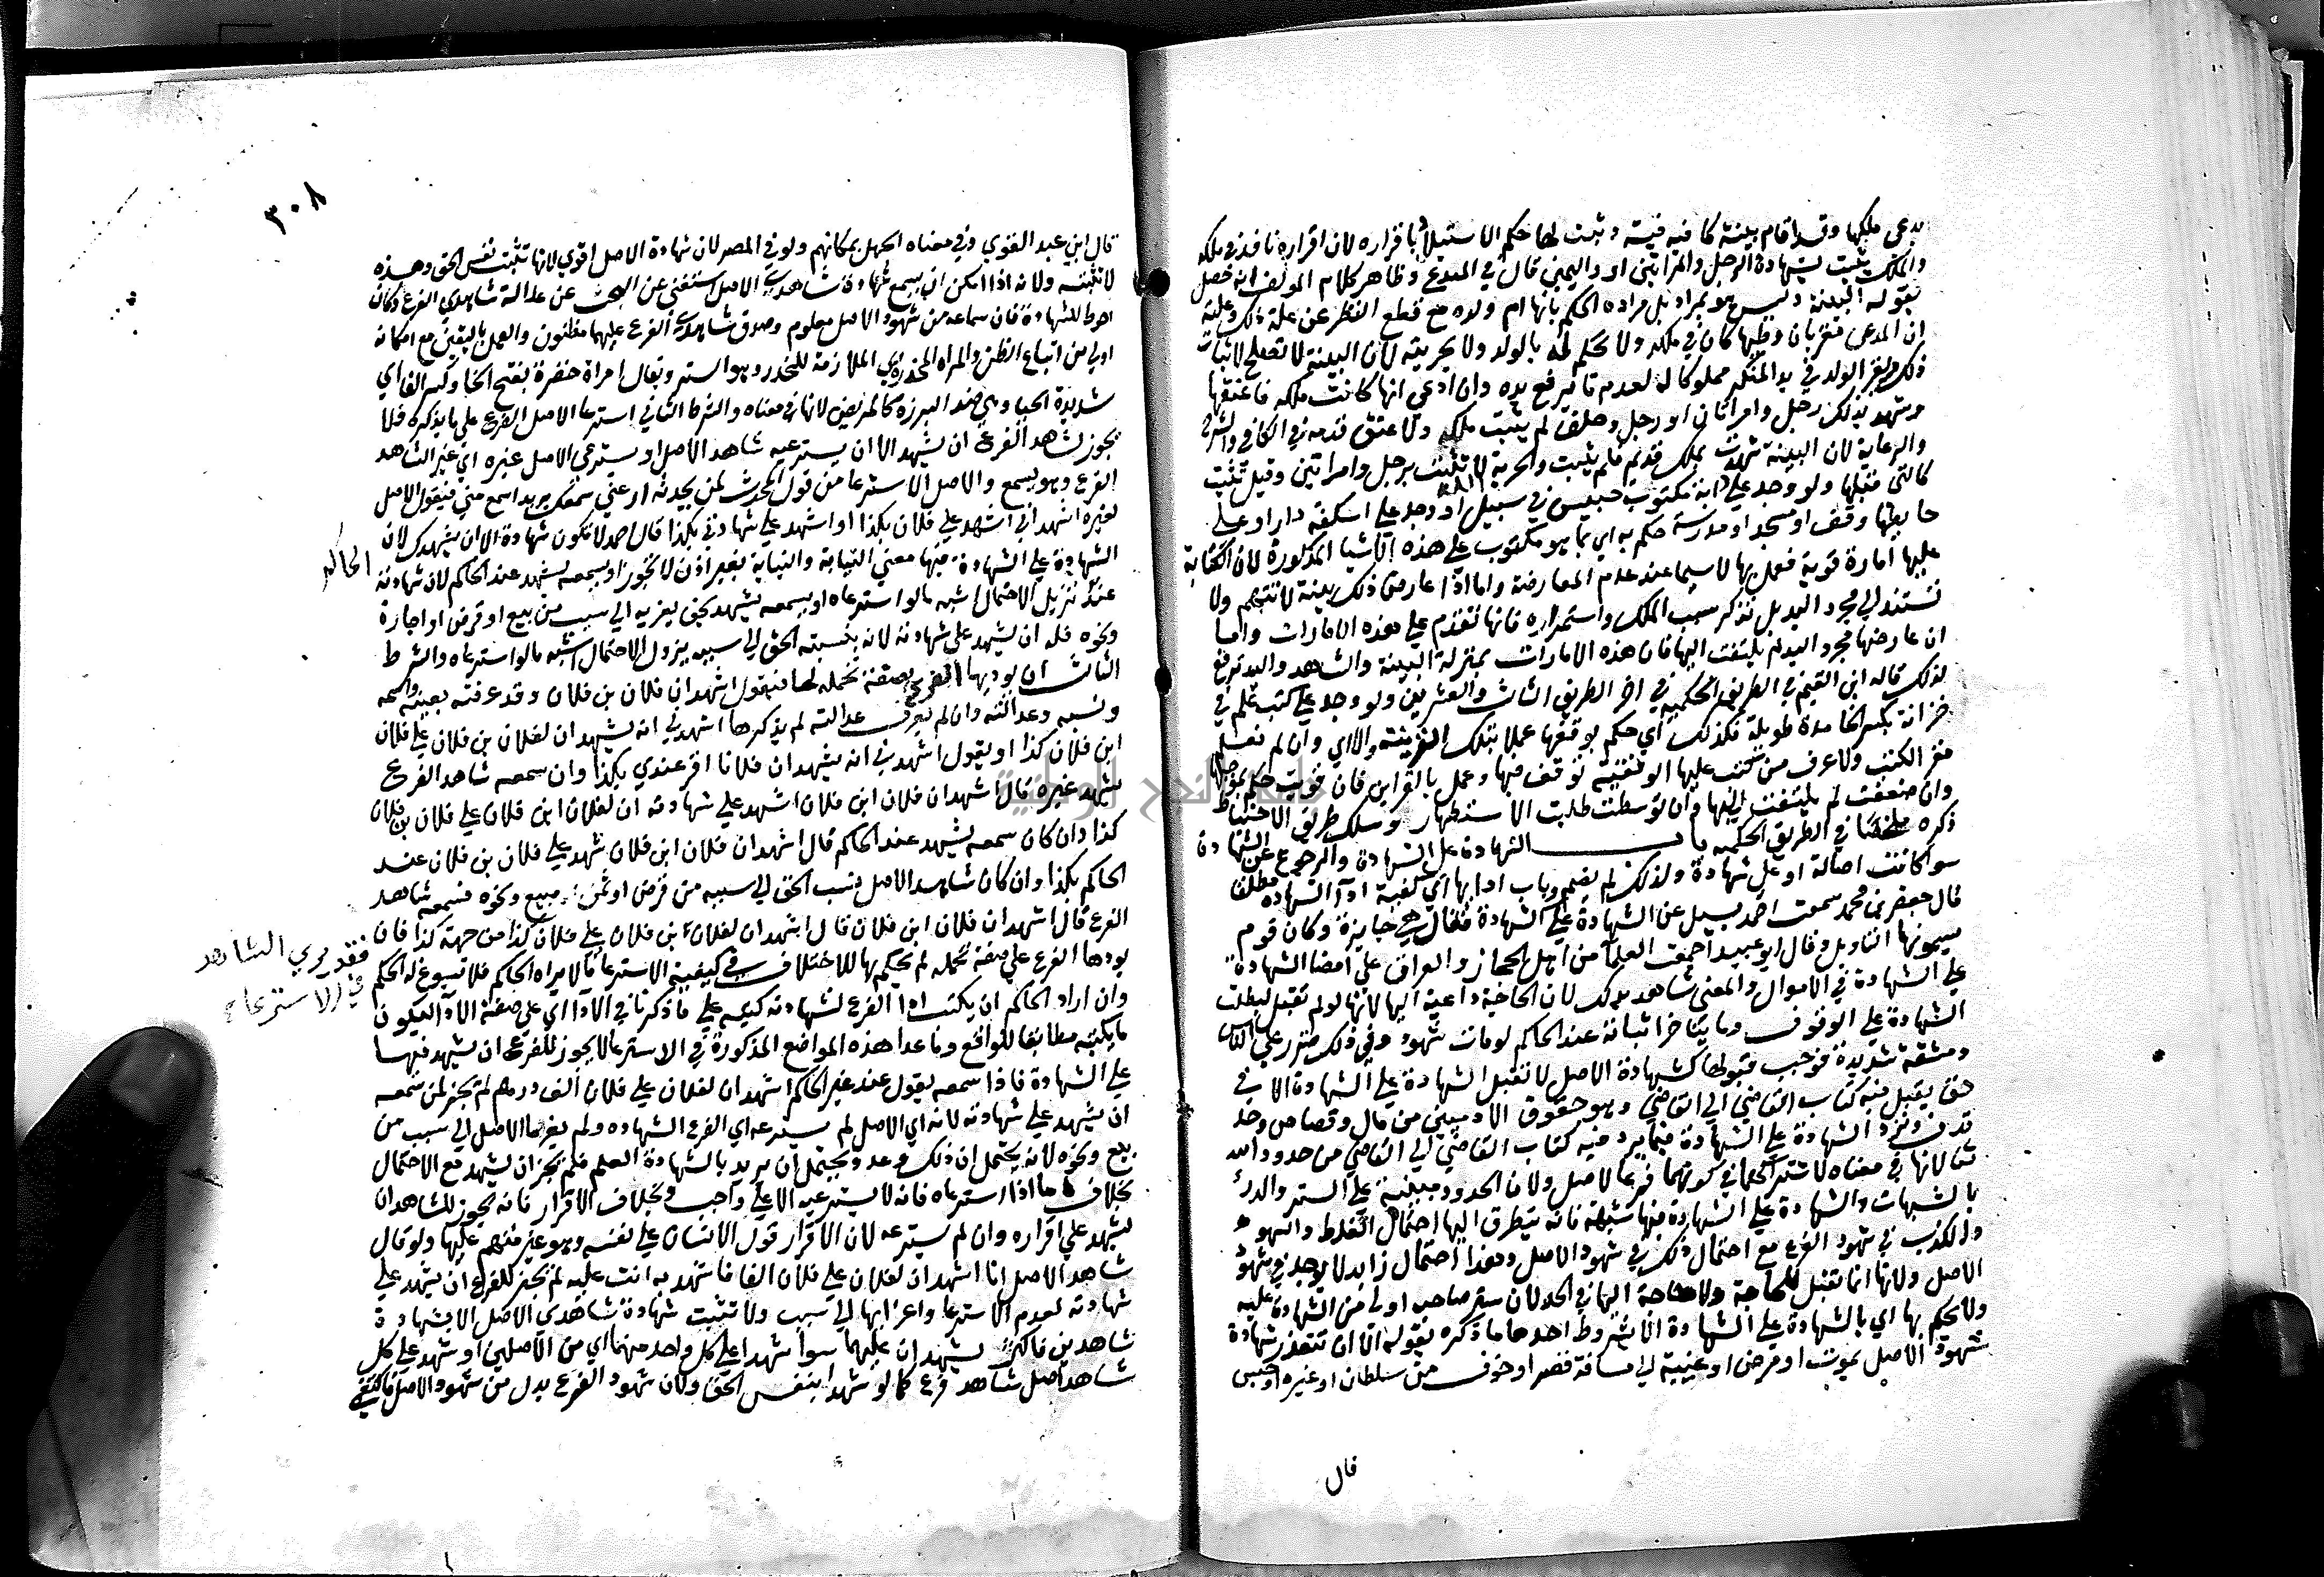 يدعي ملكها وقد اقام بينة كافية فيه وثبت لها حكم الاستيلاد باقراره لان اقراره نافذ في ملكه
والملك يثبت بشهادة الرجل والمراتين او واليمين قال في المبدع وظاهر كلام المولف انه حصل
بقوله البينة وليس هو بمراد بل مراده الحكم بانها ام ولده مع قطع النظر عن علة ذلك وعلته
ان المدعي مقر بان وطيها كان في ملكه ولا يحكم له بالولد ولا بحريته لان البينة لا تصلح لاثبات
ذلك ويقر الولد في يد المنكر مملوكا له لعدم ما يرفع يده وان ادعى انها كانت ملكه فاعتقها
وشهد بذلك رجل وامراتان او رجل وحلف لم يثبت ملكه ولا عتق قدمه في الكافي والشرح
والرعاية لان البينة شهدت بملك قديم فلم يثبت والحرية لا تثبت برجل وامراتين وقيل تثبت
كالتي قبلها ولو وجد على دابة مكتوب حبيس في سبيل او وجد على اسكفة دار او على
حايطها وقف او مسجد او مدرسة حكم به اي بما هو مكتوب على هذه الاشيا المذكورة لان الكتابة
عليها امارة قوية فعمل بها لا سيما عند عدم المعارضة واما اذا عارض ذلك بينة لا تتهم ولا
تستند الى مجرد اليد بل تذكر سبب الملك واستمراره فانها تقدم على هذه الامارات واما
ان عارضها مجرد اليد لم يلتفت اليها فان هذه الامارات بمنزلة البينة والشاهد واليد ترفع
لذلك قاله ابن القيم في الطريق الحكمية في اخر الطريق الثالث والعشرين ولو وجد على كتب علم في
خزانة بكسر الخا مدة طويلة فكذلك اي حكم بوقفها عملا بتلك القرينة والا اي وان لم نعلم
مقر الكتب ولا عرف من كتب عليها الوقفية توقف فيها وعمل بالقراين فان قويت حكم بموجبها
وان ضعفت لم يلتفت اليها وان توسطت طلبت الاستظهار وسلك طريق الاحتياط
ذكره ملخصا في الطريق الحكمية باب الشهادة على الشهادة والرجوع عن الشهادة
سوا كانت اصالة او على شهادة ولذلك لم يقيد وباب ادايها اي كيفية ادا الشهادة مطلقا
قال جعفر بن محمد سمعت احمد يسيل عن الشهادة على الشهادة فقال هي جايزة وكان قوم
يسمونها التاويل وقال ابو عبيد اجمعت العلما من اهل الحجاز والعراق على امضا الشهادة
على الشهادة في الاموال والمعنى شاهد بذلك لان الحاجة داعية اليها لانها لو لم تقبل لبطلت
الشهادة على الوقوف وما يتاخر اثباته عند الحاكم لو مات شهوده وفي ذلك ضرر على الناس
ومشقة شديدة فوجب قبولها كشهادة الاصل لا تقبل الشهادة على الشهادة الا في
حق يقبل فيه كتاب القاضي الى القاضي وهو حقوق الادميين من مال وقصاص وحد
قذف وترد الشهادة على الشهادة فيما يرد فيه كتاب القاضي الى القاضي من حدود الله
تعالى لانها في معناه لاشتراكهما في كونهما فرعا لاصل ولان الحدود مبنية على الستر والدرء
بالشبهات والشهادة على الشهادة فيها شبهة فانه يتطرق اليها احتمال الغلط والسهو
والكذب في شهود الفرع مع احتمال ذلك في شهود الاصل وهذا احتمال زايد لا يوجد في شهود
الاصل ولانها انما تقبل للحاجة ولا حاجة اليها في الحد لان ستر صاحبه اولى من الشهادة عليه
ولا يحكم بها اي بالشهادة على الشهادة الا بشروط احدها ما ذكره بقوله الا ان تتعذر شهادة
شهود الاصل بموت او مرض او غيبة الى مسافة قصر او خوف من سلطان او غيره او حبس
قال
٣٠٨
قال ابن عبد القوي وفي معناه الجهل بمكانهم ولو في المصر لان شهادة الاصل اقوى لانها تثبت نفس الحق وهذه
لا تثبته ولانه اذا امكن ان يسمع شهادة شاهدي الاصل استغنى عن البحث عن عدالة شاهدي الفرع وكان
احوط للشهادة فان سماعه من شهود الاصل معلوم وصدق شاهدي الفرع عليهما مظنون والعمل باليقين مع امكانه
اولى من اتباع الظن والمراة المخدرة اي الملازمة للخدر وهو الستر ويقال امراة خفرة بفتح الخا وكسر الفا اي
شديدة الحيا وهي ضد البرزة كالمريض لانها في معناه والشرط الثاني استرعا الاصل الفرع على ما يذكره فلا
يجوز لشاهد الفرع ان يشهد الا ان يسترعيه شاهد الاصل او يسترعي الاصل غيره اي غير الشاهد
الفرع وهو يسمع والاصل الاسترعا من قول المحدث لمن يحدثه ارعني سمعك يريد اسمع مني فيقول الاصل
لغيره اشهد اني اشهد على فلان بكذا او اشهد على شهادتي بكذا قال احمد لا تكون شهادة الا ان يشهدك لان
الشهادة على الشهادة فيها معنى النيابة والنيابة بغير اذن لا تجوز او يسمعه يشهد عند الحاكم لان شهادته
الحاكم
عند تنزيل الاحتمال اشبه ما لو استرعاه او يسمعه يشهد بحق يعزيه الى سبب من بيع او قرض او اجارة
ونحوه فله ان يشهد على شهادته لانه بنسبته الحق الى سببه يزول الاحتمال اشبه ما لو استرعاه والشرط
الثالث ان يوديها الفرع بصفة تحمله لها فيقول اشهد ان فلان بن فلان وقد عرفته بعينه واسمه
ونسبه وعدالته وان لم يعرف عدالته لم يذكرها اشهدني انه يشهد ان لفلان بن فلان على فلان
ابن فلان كذا او يقول اشهدني انه يشهد ان فلانا اقر عندي بكذا وان سمعه شاهد الفرع
يشهد غيره قال اشهد ان فلان ابن فلان اشهد على شهادته ان لفلان ابن فلان على فلان بن فلان
كذا وان كان سمعه يشهد عند الحاكم قال اشهد ان فلان ابن فلان شهد على فلان بن فلان عند
الحاكم بكذا وان كان شاهد الاصل نسب الحق الى سببه من قرض او ثمن مبيع ونحوه فسمعه شاهد
الفرع قال اشهد ان فلان ابن فلان قال اشهد ان لفلان ابن فلان على فلان كذا من جهة كذا فان لم
يودها الفرع على صفة تحمله لم يحكم بها للاختلاف في كيفية الاسترعا مما لا يراه الحاكم فلا تسوغ له الحكم
فقد يرى الشاهد
في الاسترعاء
وان اراد الحاكم ان يكتب ادا الفرع لشهادته كتبه على ما ذكرنا في الادا اي على صفة الادا ليكون
ما يكتبه مطابقا للواقع وما عدا هذه المواضع المذكورة في الاسترعا لا يجوز للفرع ان يشهد فيها
على الشهادة فاذا سمعه يقول عند غير الحاكم اشهد ان لفلان على فلان الف درهم لم يجز لمن سمعه
ان يشهد على شهادته لانه اي الاصل لم يسترعه اي الفرع الشهادة ولم يعزها الاصل الى سبب من
بيع ونحوه لانه يحتمل ان ذلك وعد ويحتمل ان يريد بالشهادة العلم فلم يجز ان يشهد مع الاحتمال
بخلاف ما اذا استرعاه فانه لا يسترعيه الا على واجب وبخلاف الاقرار فانه يجوز للشاهد ان
يشهد على اقراره وان لم يسترعه لان الاقرار قول الانسان على نفسه وهو غير متهم عليها ولو قال
شاهد الاصل انا اشهد ان لفلان على فلان الفا فاشهد به انت عليه لم يجز للفرع ان يشهد على
شهادته لعدم الاسترعا واعزايها الى سبب ولا تثبت شهادة شاهدي الاصل الا بشهادة
شاهدين فاكثر يشهدان عليهما سوا شهدا على كل واحد منهما اي من الاصلين او شهد على كل
شاهد اصل شاهد فرع كما لو شهدا بنفس الحق ولان شهود الفرع بدل من شهود الاصل فاكتفي